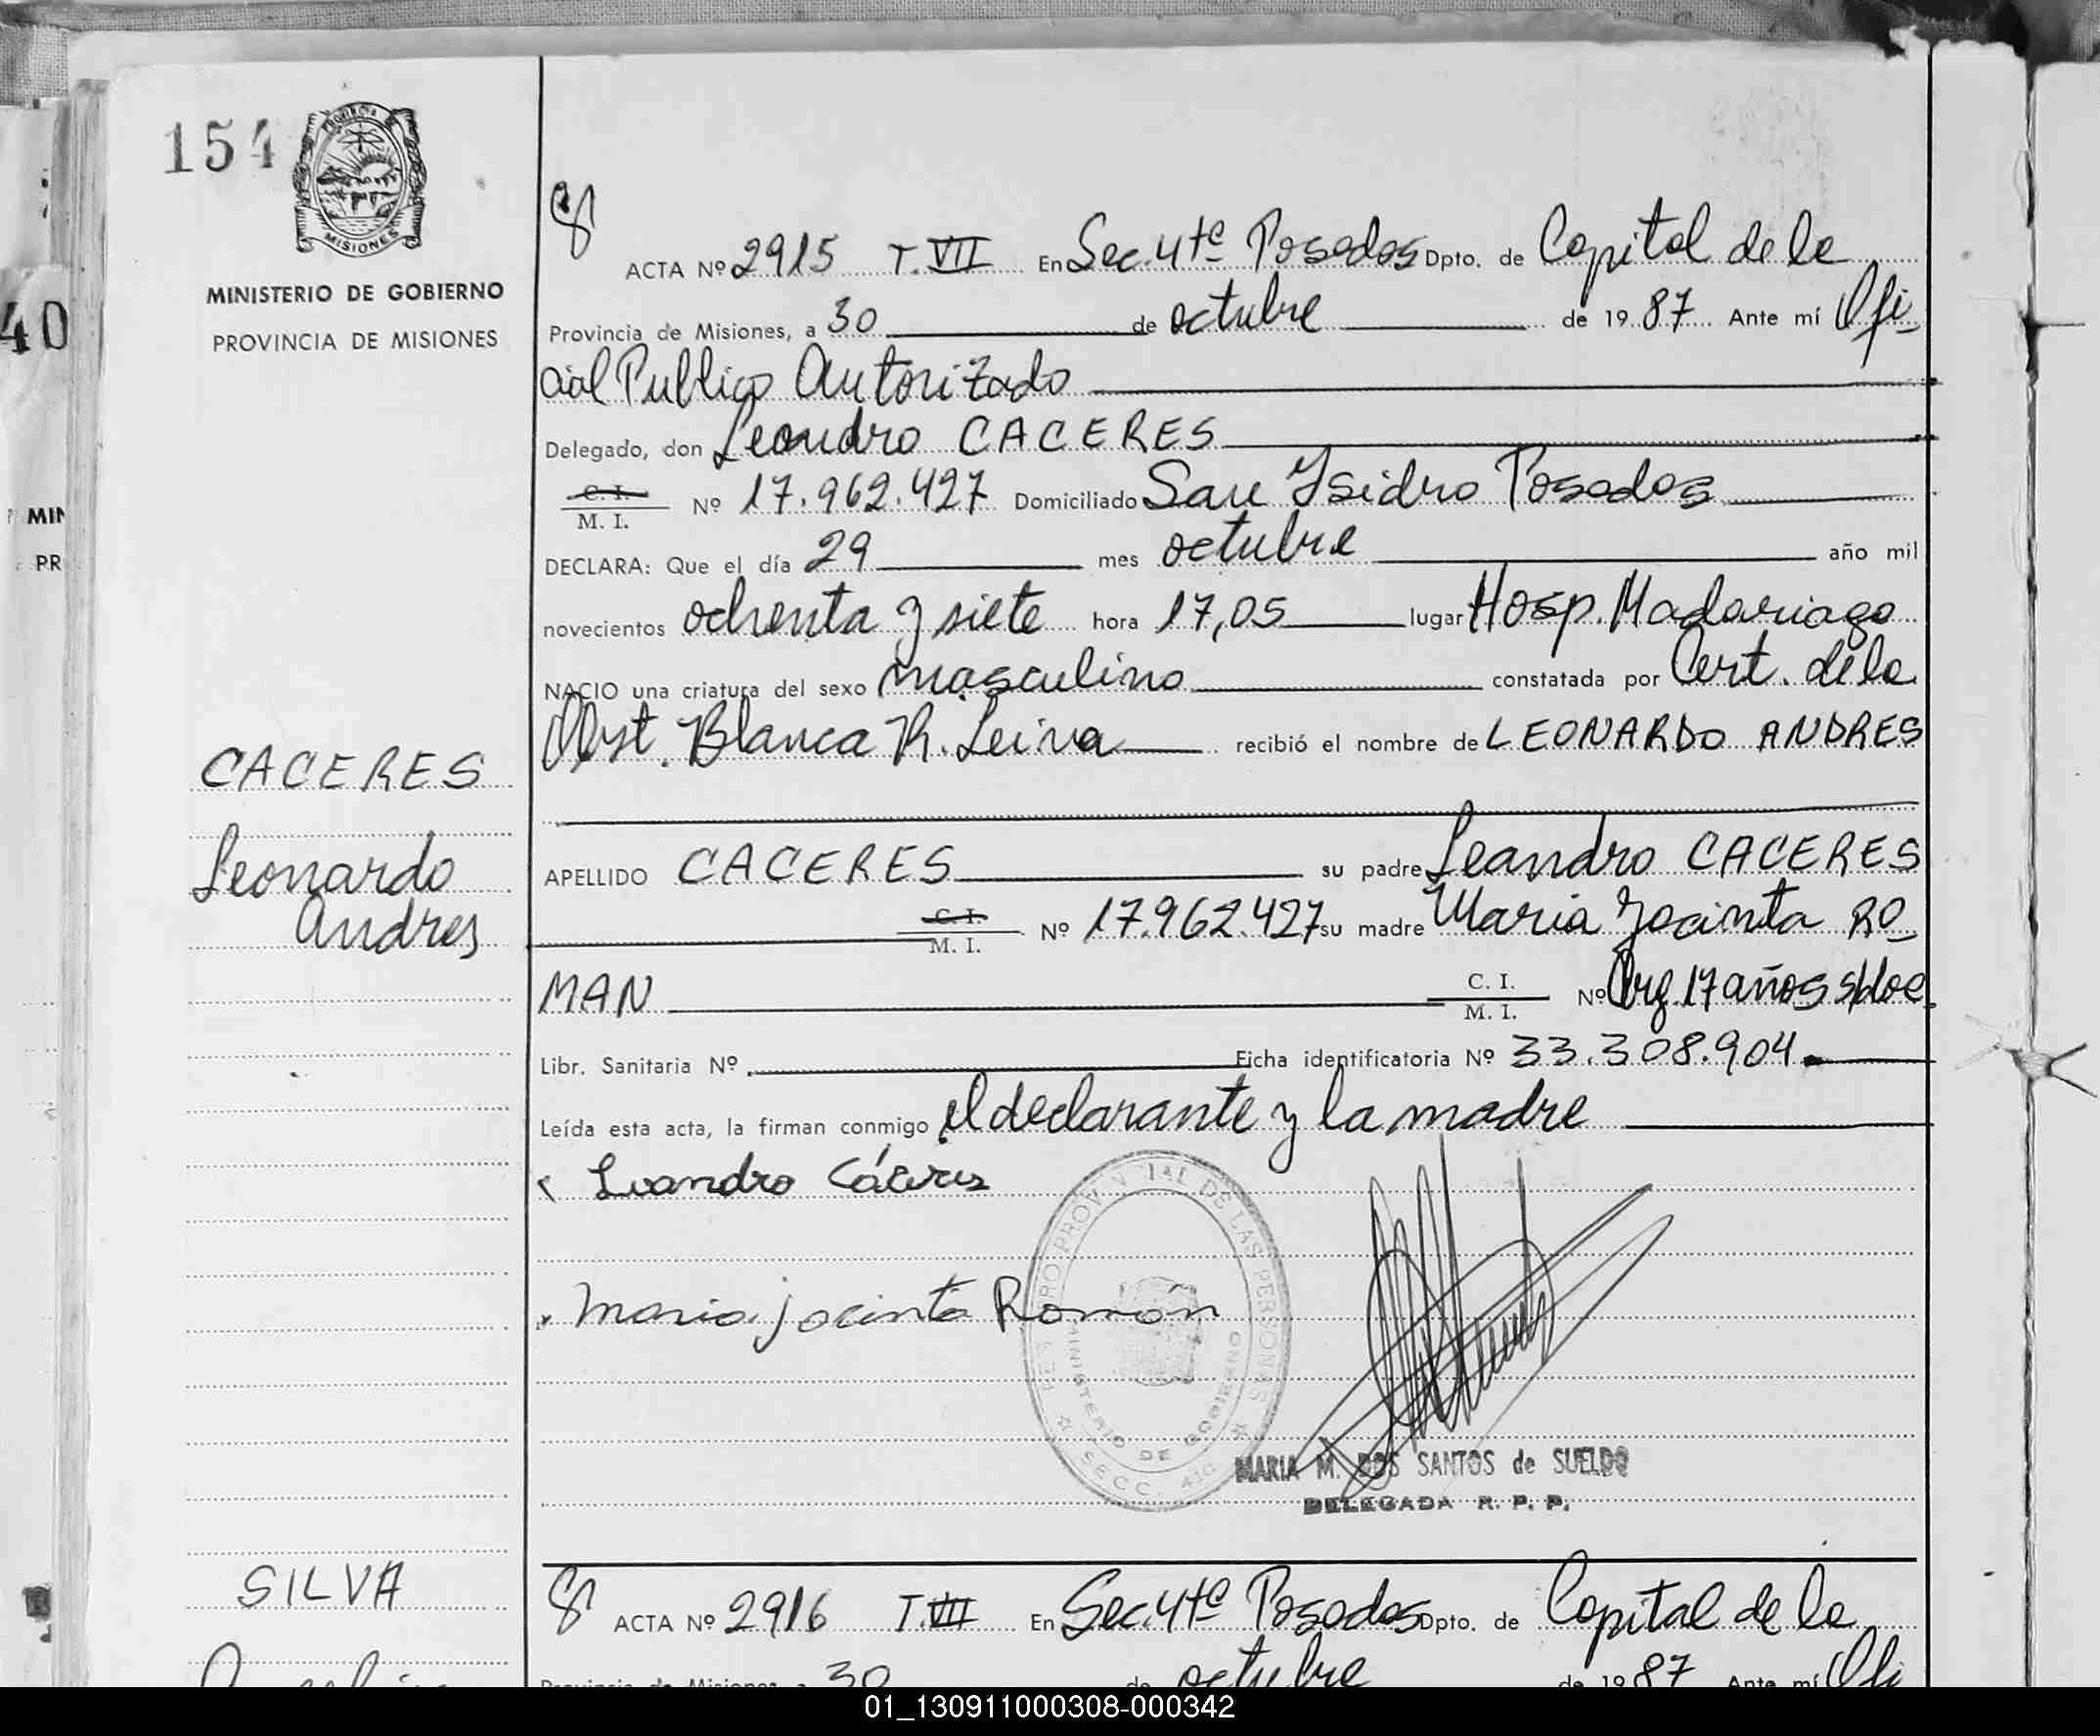 154
PROVINCIA DE
MISIONES
MINISTERIO DE GOBIERNO
PROVINCIA DE MISIONES
40
MIN
PR
CACERES
Leonardo
Andres
ACTA Nº 2915 T. VII En Sec. 4ta Posadas Dpto. de Capital de la
Provincia de Misiones, a 30 de octubre de 1987 Ante mí Ofi-
cial Publico Autorizado
Delegado, don Leandro CACERES
C. I.
M. I.
Nº 17.962.427 Domiciliado San Isidro Posadas
DECLARA: Que el día 29 mes octubre año mil
novecientos ochenta y siete hora 17,05 lugar Hosp. Madariaga
NACIO una criatura del sexo masculino constatada por Cert. de la
Obst. Blanca R. Leiva recibió el nombre de LEONARDO ANDRES
APELLIDO CACERES su padre Leandro CACERES
C. I.
M. I.
Nº 17.962.427 su madre Maria Jacinta RO-
MAN
C. I.
M. I.
Nº Arg. 17 años s/doc
Libr. Sanitaria Nº Ficha identificatoria Nº 33.308.904
Leída esta acta, la firman conmigo el declarante y la madre
Leandro Cáceres
Maria Jacinta Román
PROVINCIAL DE LAS PERSONAS
MINISTERIO DE GOBIERNO
SECC. 4ta
MARIA M. DOS SANTOS de SUELDO
DELEGADA R. P. P.
SILVA
ACTA Nº 2916 T. VII En Sec. 4ta Posadas Dpto. de Capital de la
Provincia de Misiones, a 30 de octubre de 1987 Ante mí Ofi
01_130911000308-000342